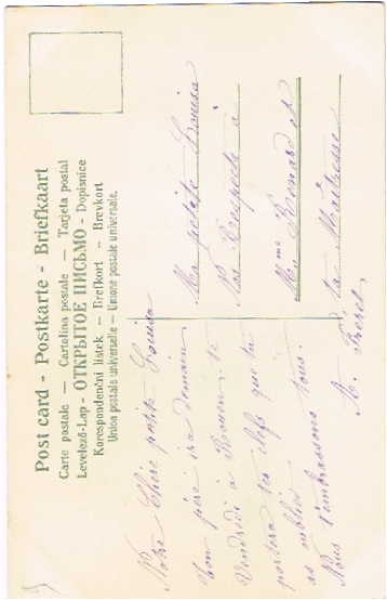 Post card - Postkarte - Briefkaart
Carte postale — Cartolina postale — Tarjeta postal
Levelező-Lap - ОТКРЫТОЕ ПИСЬМО - Dopisnice
Korespondenční lístek — Brefkort — Brevkort
Union postale universelle — Unione postale universale.
Notre Chère petite Louisa
ton père ira demain
Vendredi à Rouen te
portera tes clefs que tu
as oubliées
Nous t'embrassons tous.
Ma petite Louisa
Mme
et
sa Maîtresse